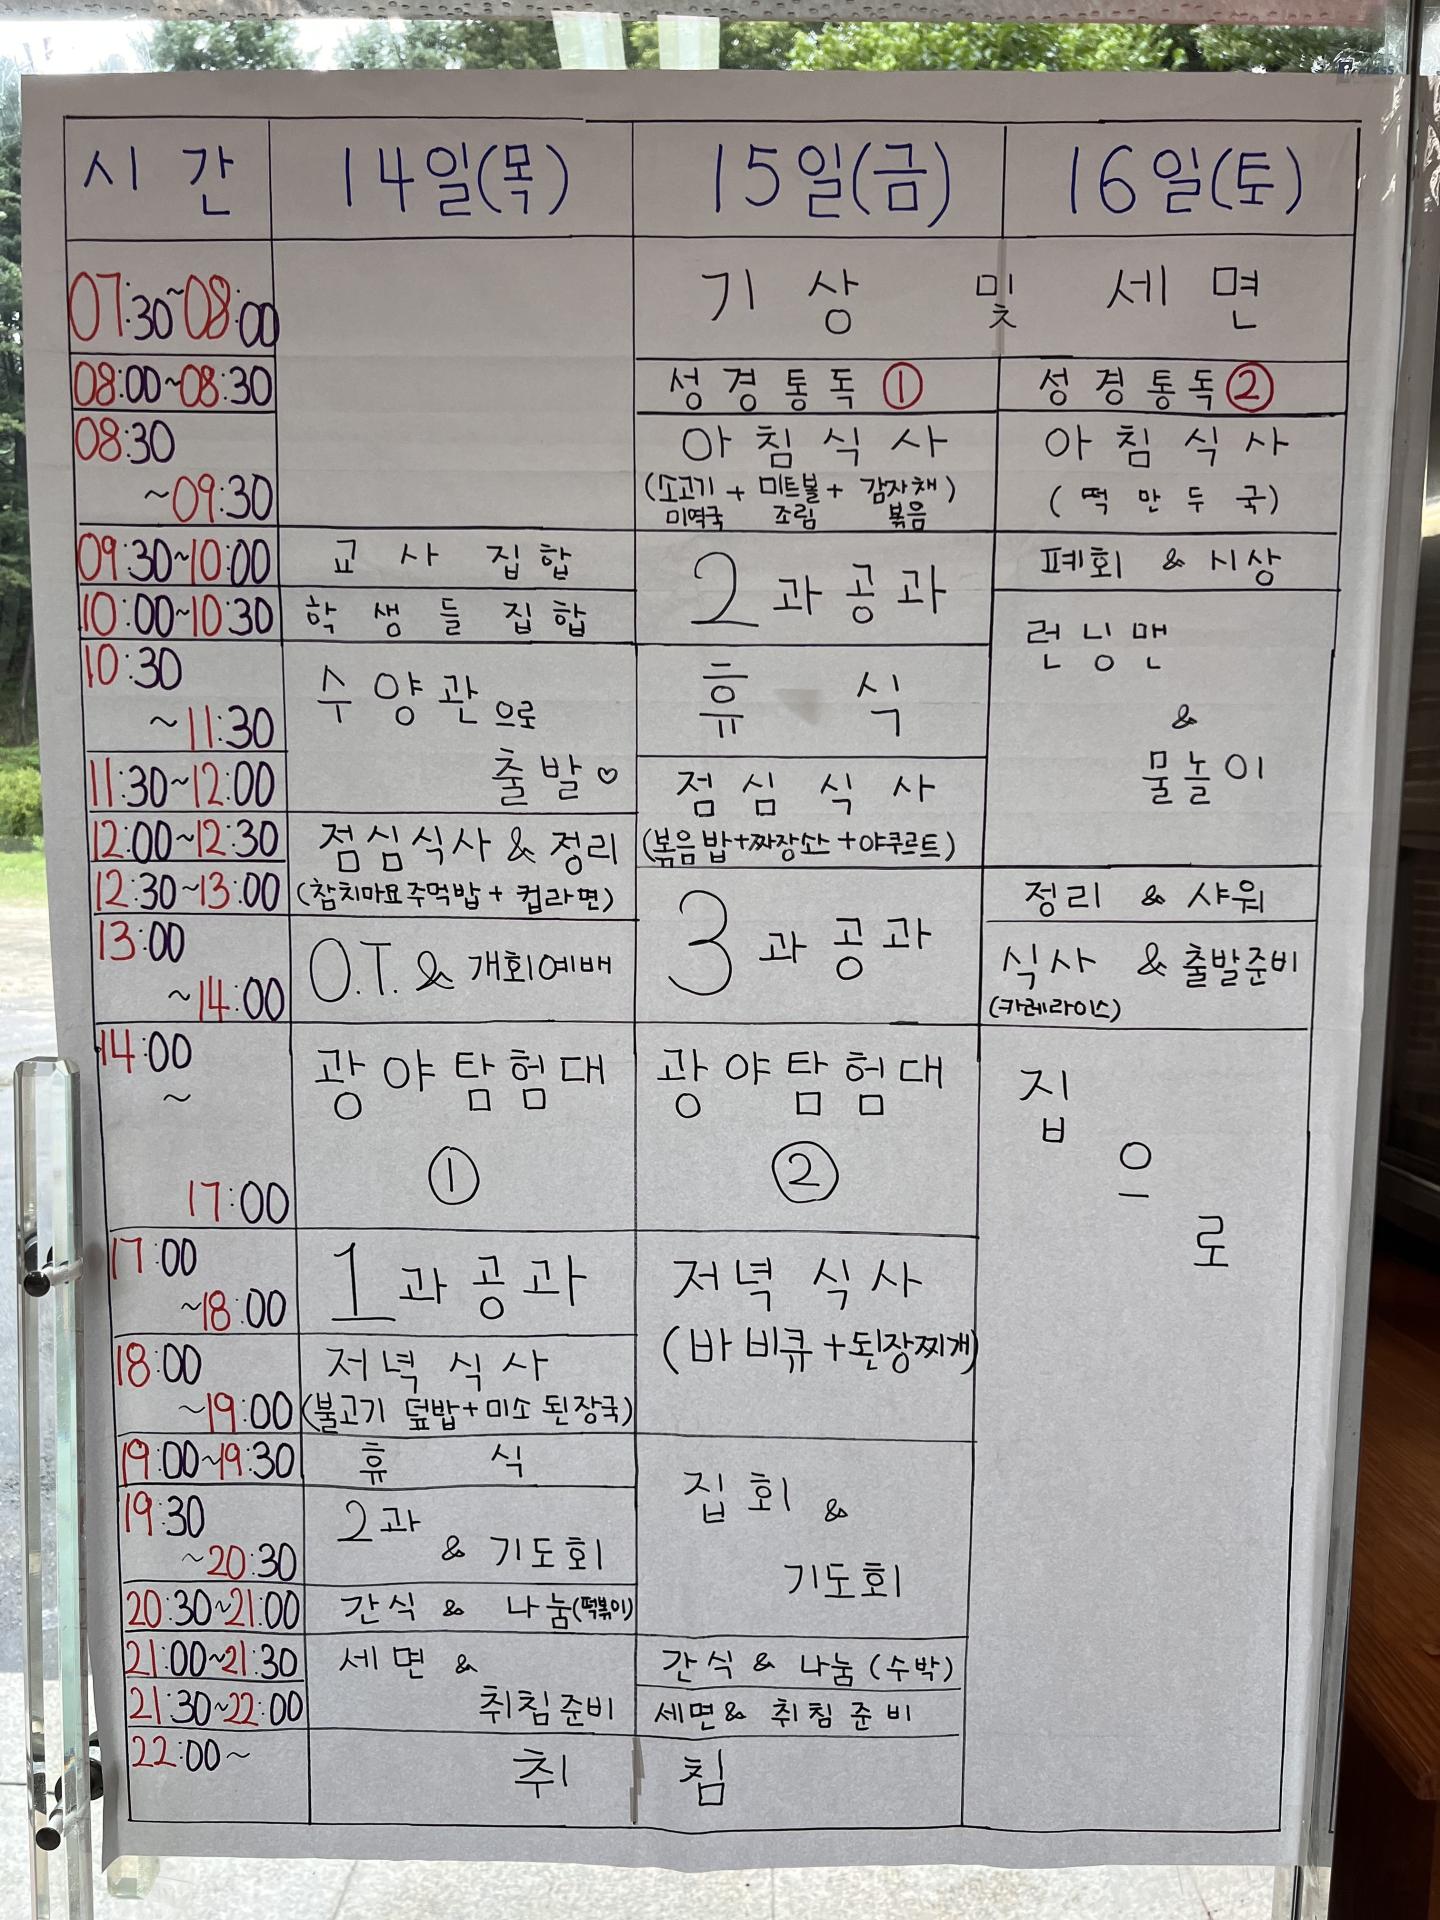 시 간 14일(목) 15일(금) 16일(토)
07:30~08:00 기 상 및 세 면
08:00~08:30 성 경 통 독 ① 성 경 통 독 ②
08:30 ~09:30 아 침 식 사 아 침 식 사
(소고기 + 미트볼 + 감자채) ( 떡 만 두 국)
미역국 조림 볶음
09:30~10:00 교 사 집 합 2 과 공 과 폐회 & 시상
10:00~10:30 학 생 들 집 합
런 닝 맨
&
물 놀 이
10:30 ~11:30 수 양 관 으로 휴 식
출 발 ♡
11:30~12:00 점 심 식 사
(볶음밥+짜장소스+야쿠르트)
12:00~12:30 점심식사 & 정리
12:30~13:00 (참치마요주먹밥 + 컵라면) 3 과 공 과 정리 & 샤워
13:00 ~14:00 O.T. & 개회예배 식사 & 출발준비
(카레라이스)
14:00 ~ 17:00 광 야 탐 험 대 광 야 탐 험 대 집 으 로
① ②
17:00 ~18:00 1 과 공 과 저녁 식 사
(바비큐+된장찌개)
18:00 ~19:00 저녁 식 사
(불고기 덮밥+미소 된장국)
19:00~19:30 휴 식 집회 &
기도회
19:30 ~20:30 2과
& 기도회
20:30~21:00 간식 & 나눔(떡볶이)
21:00~21:30 세 면 & 간식 & 나눔 (수박)
21:30~22:00 취침준비 세면& 취침 준 비
22:00~ 취 침